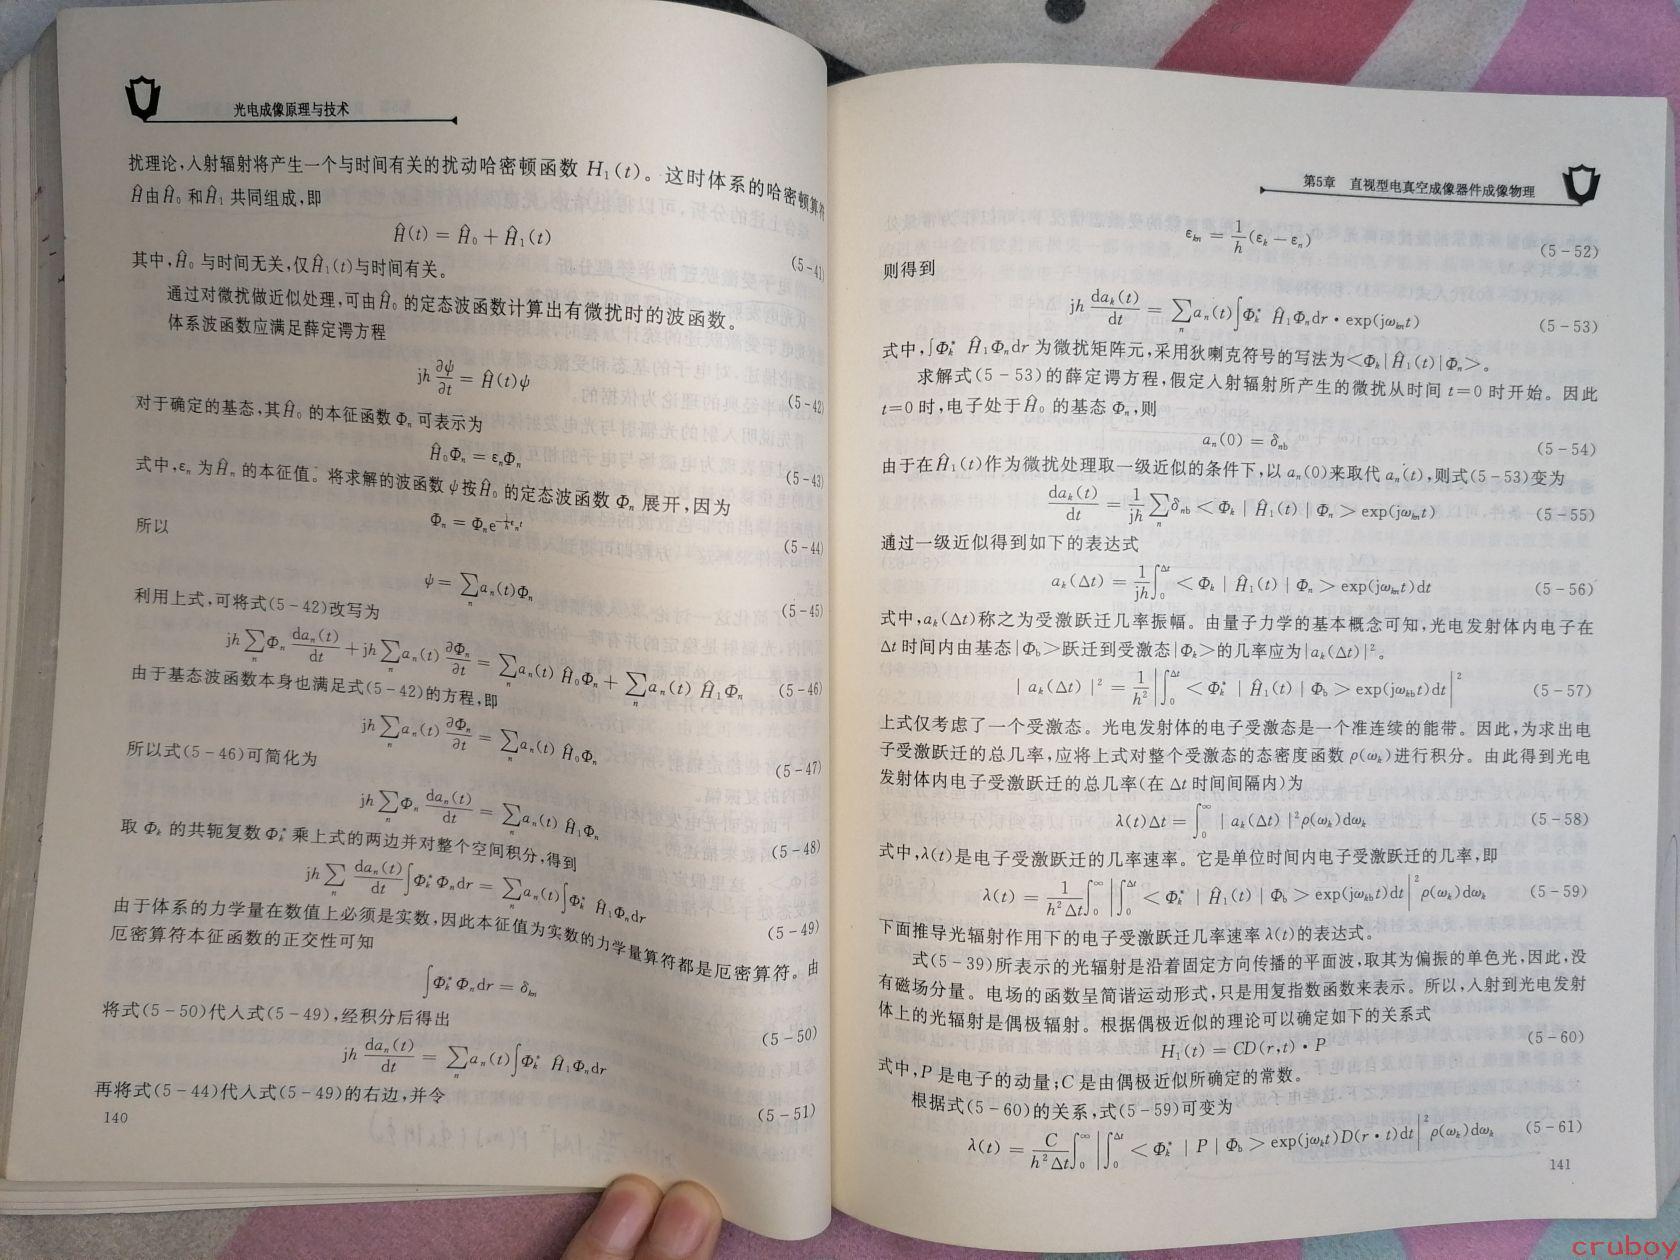 光电成像原理与技术
扰理论,入射辐射将产生一个与时间有关的扰动哈密顿函数 H₁(t)。这时体系的哈密顿算符
Ĥ由Ĥ₀ 和Ĥ₁ 共同组成,即
Ĥ(t) = Ĥ₀ + Ĥ₁(t) (5-41)
其中,Ĥ₀ 与时间无关,仅Ĥ₁(t)与时间有关。
通过对微扰做近似处理,可由Ĥ₀ 的定态波函数计算出有微扰时的波函数。
体系波函数应满足薛定谔方程
jh ∂ψ/∂t = Ĥ(t)ψ (5-42)
对于确定的基态,其Ĥ₀ 的本征函数 Φₙ 可表示为
Ĥ₀Φₙ = εₙΦₙ (5-43)
式中,εₙ 为Ĥₙ 的本征值。将求解的波函数 ψ按Ĥ₀ 的定态波函数 Φₙ 展开,因为
(5-44)
所以
ψ = ∑ₙ aₙ(t)Φₙ (5-45)
利用上式,可将式(5-42)改写为
jh ∑ₙ Φₙ daₙ(t)/dt + jh ∑ₙ aₙ(t) ∂Φₙ/∂t = ∑ₙ aₙ(t) Ĥ₀Φₙ + ∑ₙ aₙ(t) Ĥ₁Φₙ (5-46)
由于基态波函数本身也满足式(5-42)的方程,即
jh ∑ₙ aₙ(t) ∂Φₙ/∂t = ∑ₙ aₙ(t) Ĥ₀Φₙ (5-47)
所以式(5-46)可简化为
jh ∑ₙ Φₙ daₙ(t)/dt = ∑ₙ aₙ(t) Ĥ₁Φₙ (5-48)
取 Φₖ 的共轭复数 Φₖ* 乘上式的两边并对整个空间积分,得到
jh ∑ₙ daₙ(t)/dt ∫Φₖ* Φₙdr = ∑ₙ aₙ(t)∫Φₖ* Ĥ₁Φₙdr (5-49)
由于体系的力学量在数值上必须是实数,因此本征值为实数的力学量算符都是厄密算符。由
厄密算符本征函数的正交性可知
∫Φₖ* Φₙdr = δₖₙ (5-50)
将式(5-50)代入式(5-49),经积分后得出
jh daₙ(t)/dt = ∑ₙ aₙ(t)∫Φₖ* Ĥ₁Φₙdr (5-51)
再将式(5-44)代入式(5-49)的右边,并令
140
第5章 直视型电真空成像器件成像物理
εₖₙ = 1/h (εₖ - εₙ) (5-52)
则得到
jh daₖ(t)/dt = ∑ₙ aₙ(t)∫Φₖ* Ĥ₁Φₙdr · exp(jωₖₙt) (5-53)
式中,∫Φₖ* Ĥ₁Φₙdr 为微扰矩阵元,采用狄喇克符号的写法为<Φₖ|Ĥ₁(t)|Φₙ>。
求解式(5-53)的薛定谔方程,假定入射辐射所产生的微扰从时间 t=0 时开始。因此
t=0 时,电子处于Ĥ₀ 的基态 Φₙ,则
aₙ(0) = δₙb (5-54)
由于在Ĥ₁(t)作为微扰处理取一级近似的条件下,以 aₙ(0)来取代 aₙ(t),则式(5-53)变为
daₖ(t)/dt = 1/jh ∑ₙ δₙb < Φₖ | Ĥ₁(t) | Φₙ > exp(jωₖₙt) (5-55)
通过一级近似得到如下的表达式
aₖ(Δt) = 1/jh ∫₀^Δt < Φₖ | Ĥ₁(t) | Φₙ > exp(jωₖₙt)dt (5-56)
式中,aₖ(Δt)称之为受激跃迁几率振幅。由量子力学的基本概念可知,光电发射体内电子在
Δt 时间内由基态|Φb>跃迁到受激态|Φₖ>的几率应为|aₖ(Δt)|²。
| aₖ(Δt) |² = 1/h² |∫₀^Δt < Φₖ* | Ĥ₁(t) | Φb > exp(jωₖbt)dt|² (5-57)
上式仅考虑了一个受激态。光电发射体的电子受激态是一个准连续的能带。因此,为求出电
子受激跃迁的总几率,应将上式对整个受激态的态密度函数 ρ(ωₖ)进行积分。由此得到光电
发射体内电子受激跃迁的总几率(在 Δt 时间间隔内)为
λ(t)Δt = ∫₀^∞ | aₖ(Δt) |²ρ(ωₖ)dωₖ (5-58)
式中,λ(t)是电子受激跃迁的几率速率。它是单位时间内电子受激跃迁的几率,即
λ(t) = 1/h²Δt ∫₀^∞ |∫₀^Δt < Φₖ* | Ĥ₁(t) | Φb > exp(jωₖbt)dt|² ρ(ωₖ)dωₖ (5-59)
下面推导光辐射作用下的电子受激跃迁几率速率 λ(t)的表达式。
式(5-39)所表示的光辐射是沿着固定方向传播的平面波,取其为偏振的单色光,因此,没
有磁场分量。电场的函数呈简谐运动形式,只是用复指数函数来表示。所以,入射到光电发射
体上的光辐射是偶极辐射。根据偶极近似的理论可以确定如下的关系式
H₁(t) = CD(r,t) · P (5-60)
式中,P 是电子的动量;C 是由偶极近似所确定的常数。
根据式(5-60)的关系,式(5-59)可变为
λ(t) = C/h²Δt ∫₀^∞ |∫₀^Δt < Φₖ* | P | Φb > exp(jωₖt)D(r·t)dt|² ρ(ωₖ)dωₖ (5-61)
141
cruboy